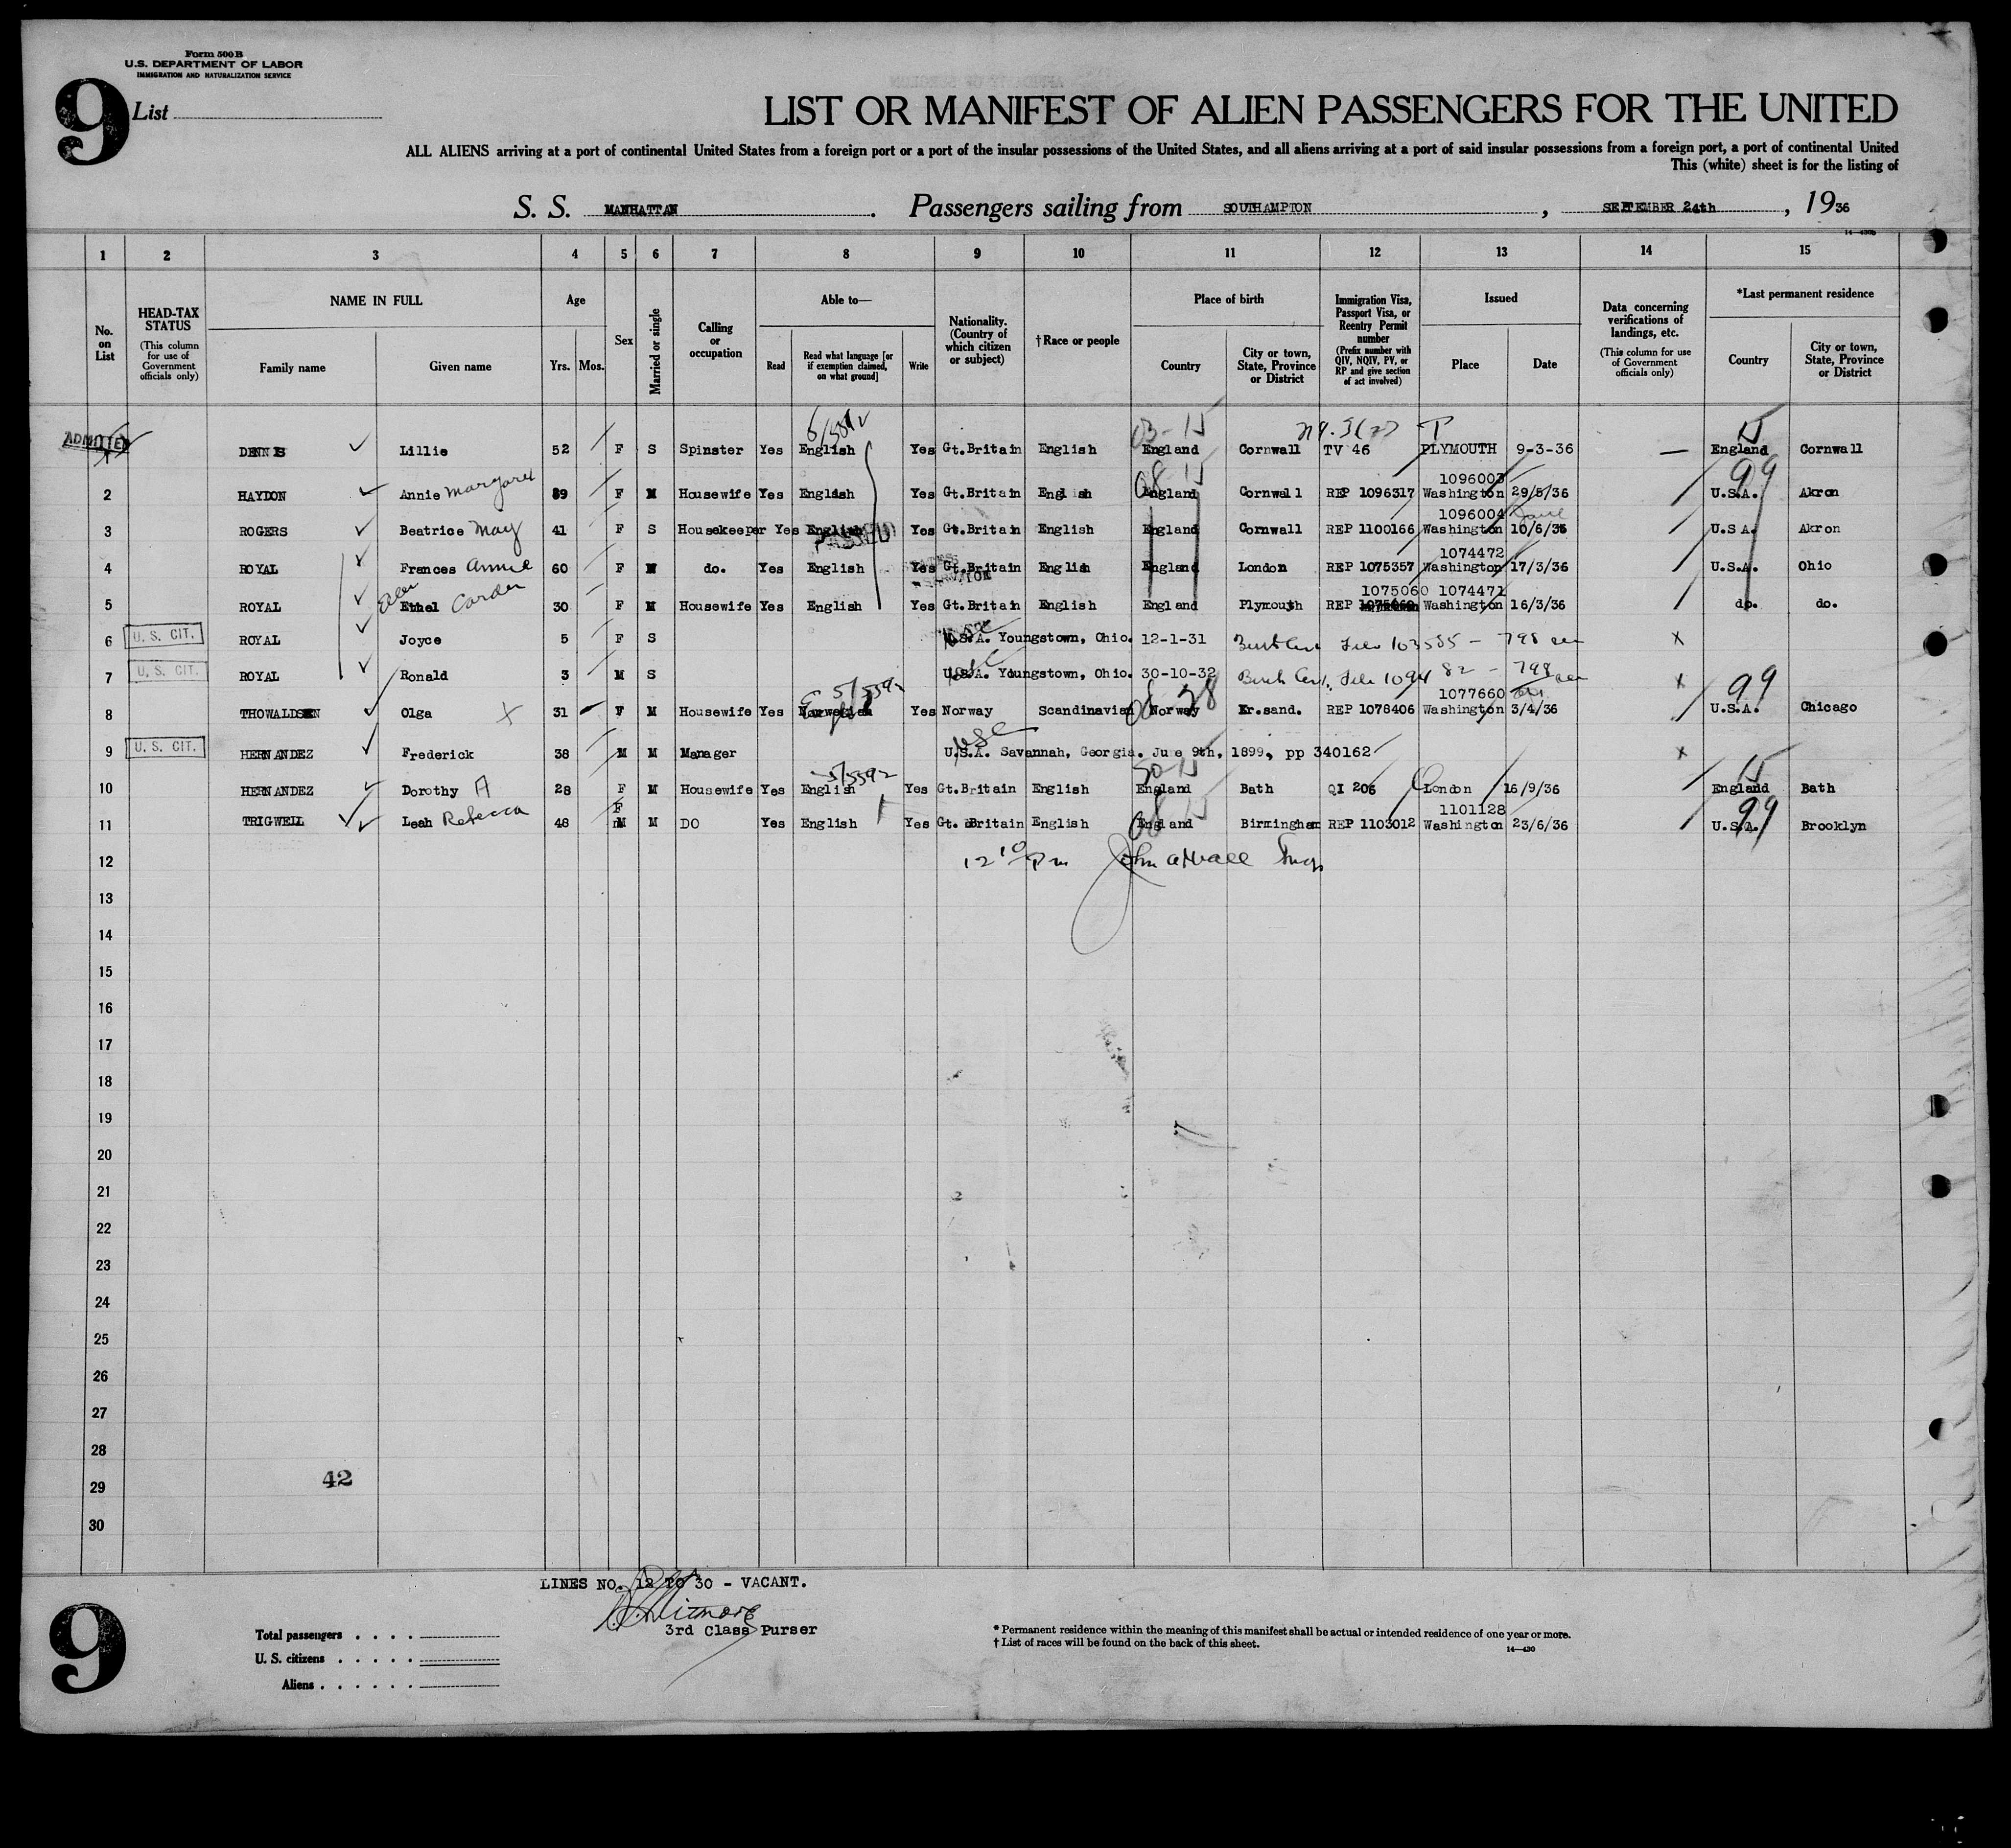 Form 500 B
U.S. DEPARTMENT OF LABOR
IMMIGRATION AND NATURALIZATION SERVICE
9 List
LIST OR MANIFEST OF ALIEN PASSENGERS FOR THE UNITED
ALL ALIENS arriving at a port of continental United States from a foreign port or a port of the insular possessions of the United States, and all aliens arriving at a port of said insular possessions from a foreign port, a port of continental United
This (white) sheet is for the listing of
S. S. MANHATTAN. Passengers sailing from SOUTHAMPTON, SEPTEMBER 24th, 1936
1 2 3 4 5 6 7 8 9 10 11 12 13 14 15
No. on List
HEAD-TAX STATUS (This column for use of Government officials only)
NAME IN FULL
Family name
Given name
Age
Yrs. Mos.
Sex
Married or single
Calling or occupation
Able to—
Read
Read what language [or if exemption claimed, on what ground]
Write
Nationality. (Country of which citizen or subject)
† Race or people
Place of birth
Country
City or town, State, Province or District
Immigration Visa, Passport Visa, or Reentry Permit number (Prefix number with QIV, NQIV, PV, or RP and give section of act involved)
Issued
Place
Date
Data concerning verifications of landings, etc. (This column for use of Government officials only)
*Last permanent residence
Country
City or town, State, Province or District
03-15 T 15
ADMITTED DENNIS Lillie 52 F S Spinster Yes English Yes Gt.Britain English England Cornwall TV 46 PLYMOUTH 9-3-36 — England Cornwall
1096003 99
2 HAYDON Annie Margaret 39 F M Housewife Yes English Yes Gt.Britain English England Cornwall REP 1096317 Washington 29/5/36 U.S.A. Akron
1096004
3 ROGERS Beatrice May 41 F S Housekeeper Yes English Yes Gt.Britain English England Cornwall REP 1100166 Washington 10/6/36 U.S.A. Akron
PASSED
1074472
4 ROYAL Frances Annie 60 F M do. Yes English Yes Gt.Britain English England London REP 1075357 Washington 17/3/36 U.S.A. Ohio
1075060 1074471
5 ROYAL Ethel Carder 30 F M Housewife Yes English Yes Gt.Britain English England Plymouth REP Washington 16/3/36 do. do.
6 U. S. CIT. ROYAL Joyce 5 F S U.S.A. Youngstown, Ohio. 12-1-31 Birth Cert File 103585 - 798 x
7 U. S. CIT. ROYAL Ronald 3 M S U.S.A. Youngstown, Ohio. 30-10-32 Birth Cert. File 1094 82 - 798 x
1077660 99
8 THOWALDSEN Olga X 31 F M Housewife Yes Norwegian Yes Norway Scandinavian Norway Kr.sand. REP 1078406 Washington 3/4/36 U.S.A. Chicago
USC
9 U. S. CIT. HERNANDEZ Frederick 38 M M Manager U.S.A. Savannah, Georgia. June 9th, 1899, pp 340162 x
50-15 15
10 HERNANDEZ Dorothy A 28 F M Housewife Yes English Yes Gt.Britain English England Bath QI 206 London 16/9/36 England Bath
F 1101128 99
11 TRIGWELL Leah Rebecca 48 M M DO Yes English Yes Gt. Britain English England Birmingham REP 1103012 Washington 23/6/36 U.S.A. Brooklyn
12 12 10 pm
13
14
15
16
17
18
19
20
21
22
23
24
25
26
27
28
29 42
30
LINES NO. 12 TO 30 - VACANT.
3rd Class Purser
9
Total passengers . . . .
U. S. citizens . . . . .
Aliens . . . . . .
* Permanent residence within the meaning of this manifest shall be actual or intended residence of one year or more.
† List of races will be found on the back of this sheet.
14—430